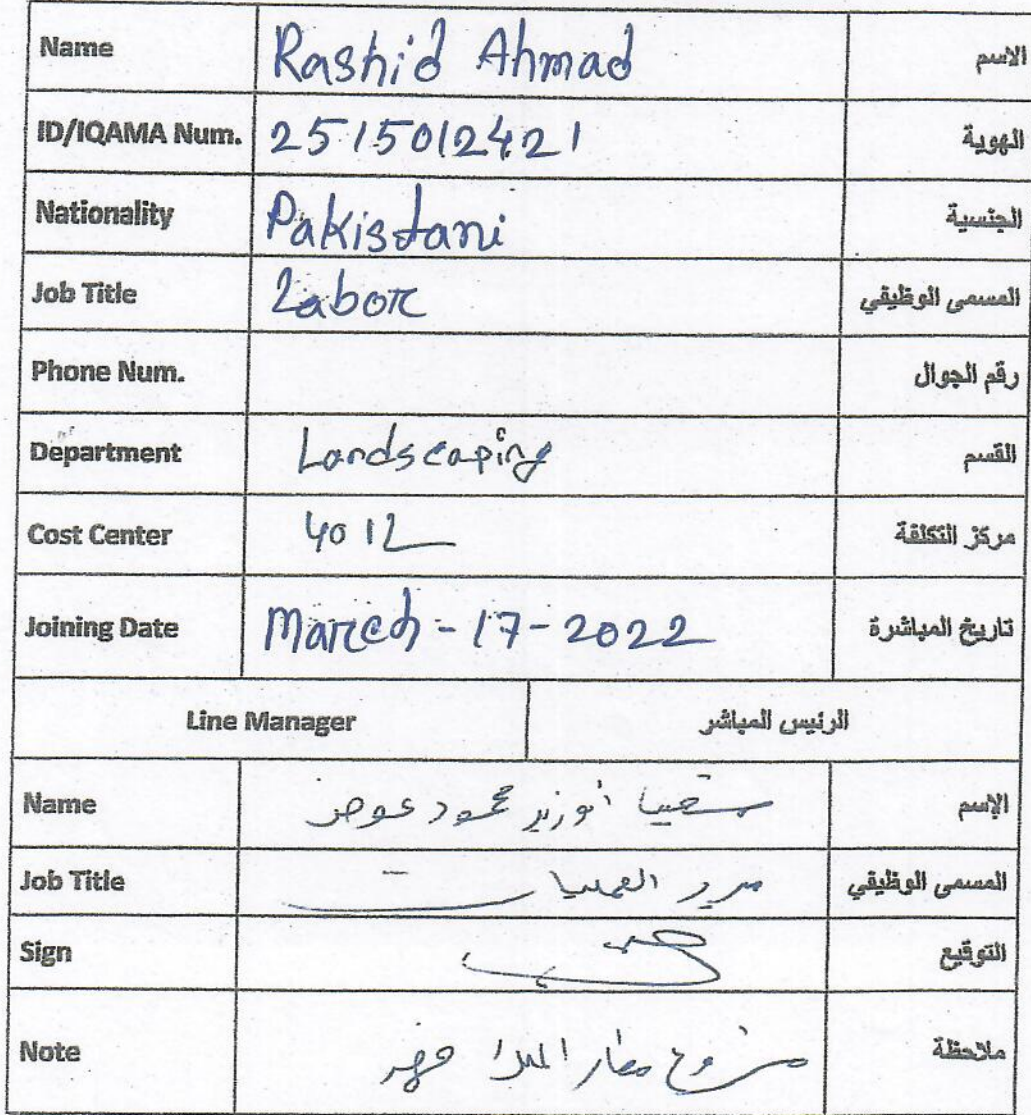 Name Rashid Ahmad الاسم
ID/IQAMA Num. 2515012421 الهوية
Nationality Pakistani الجنسية
Job Title Labor المسمى الوظيفي
Phone Num. رقم الجوال
Department Landscaping القسم
Cost Center 4012 مركز التكلفة
Joining Date March-17-2022 تاريخ المباشرة
Line Manager الرئيس المباشر
Name أبوزيد محمود عوض الإسم
Job Title مدير العمليات المسمى الوظيفي
Sign التوقيع
Note مشروع مطار الملك فهد ملاحظة